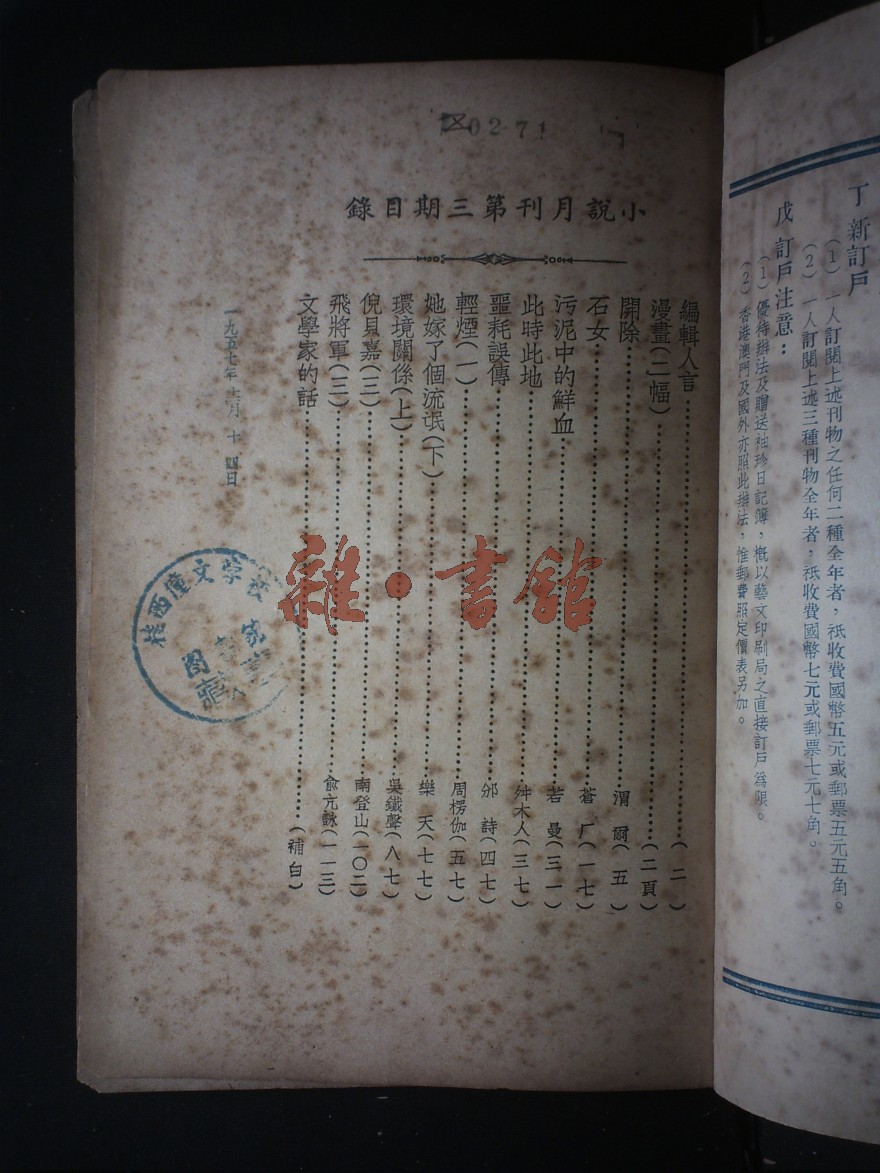 丁 新訂戶
(1) 一人訂閱上述刊物之任何二種全年者，祇收費國幣五元或郵票五元五角。
(2) 一人訂閱上述三種刊物全年者，祇收費國幣七元或郵票七元七角。
戊 訂戶注意：
(1) 優待辦法及贈送袖珍日記簿，概以藝文印刷局之直接訂戶為限。
(2) 香港澳門及國外亦照此辦法，惟郵費照定價表另加。
0271
小說月刊第三期目錄
編輯人言……(二)
漫畫(二幅)……(二頁)
開除……渭爾(五)
石女……蒼厂(一七)
污泥中的鮮血……若曼(三一)
此時此地……舛木人(三七)
噩耗誤傳……邠詩(四七)
輕煙(一)……周楞伽(五七)
她嫁了個流氓(下)……樂天(七七)
環境關係(上)……吳鐵聲(八七)
倪貝嘉(三)……南登山(一〇二)
飛將軍(三)……俞亢詠(一一三)
文學家的話……(補白)
一九五七年 月 十四日
桂西僮文學校
圖 藏
雜·書館